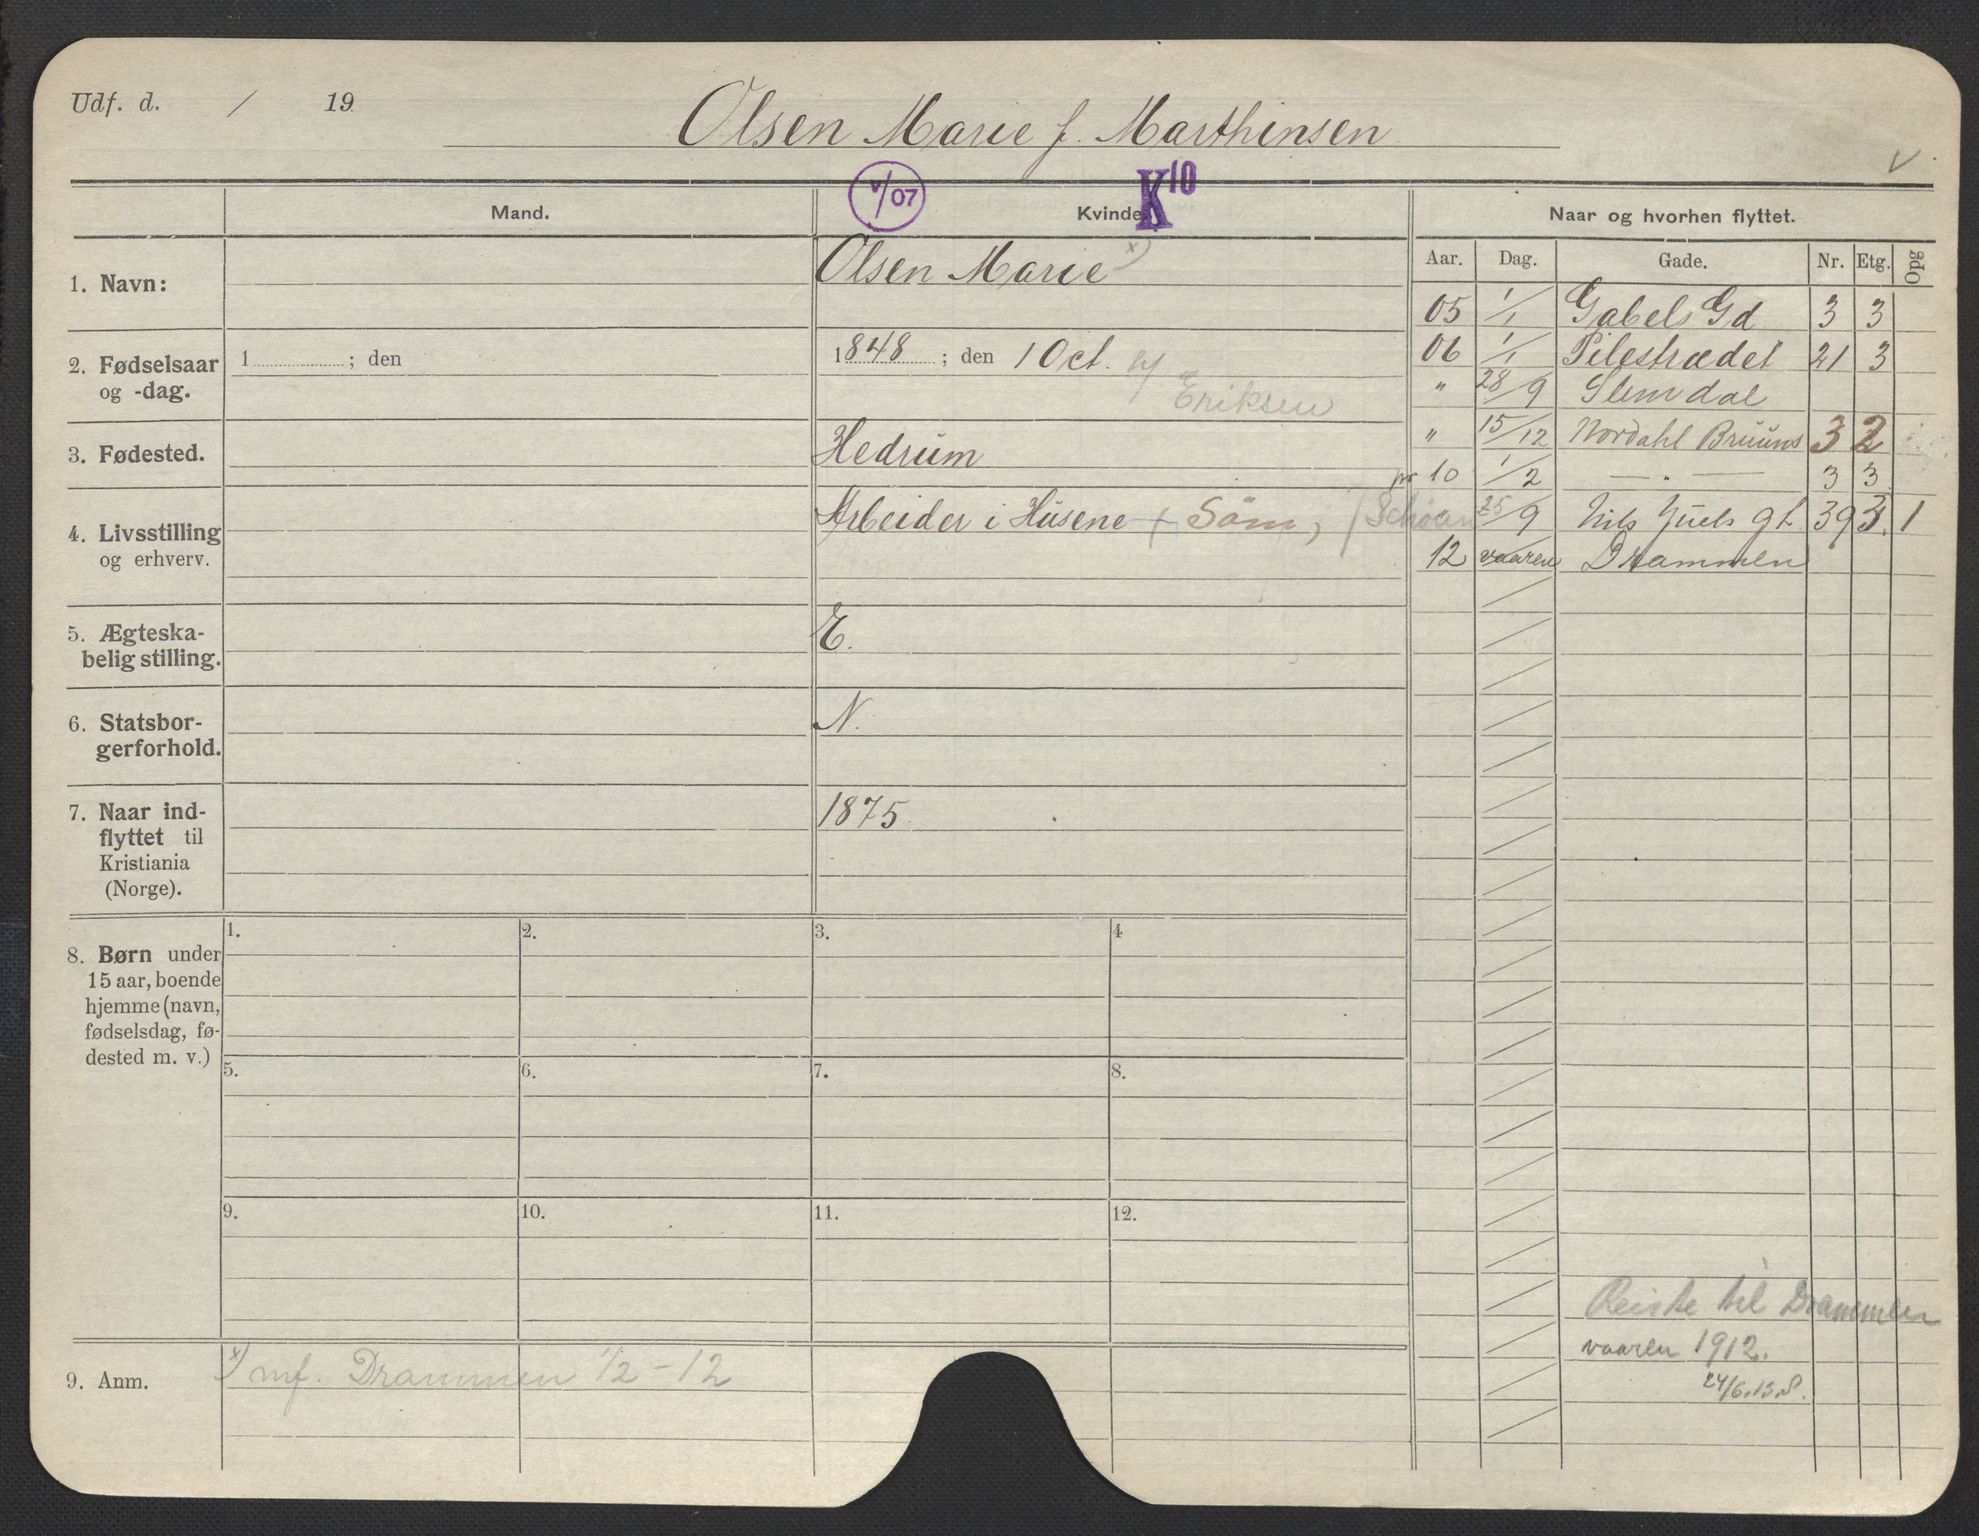 Udf. d. / 19
Olsen Marie f. Marthinsen
v
v/07
K10
Mand.
Kvinde.
Naar og hvorhen flyttet.
Aar. Dag. Gade. Nr. Etg. Opg
1. Navn:
Olsen Marie x)
2. Fødselsaar
og -dag.
1 ; den
1848 ; den 1 Oct.
Eriksen
3. Fødested.
Hedrum
4. Livsstilling
og erhverv.
Arbeider i Husene (Söm,)
5. Ægteska-
belig stilling.
E.
6. Statsbor-
gerforhold.
N.
7. Naar ind-
flyttet til
Kristiania
(Norge).
1875
05 1/1 Gabels Gd 3 3
06 1/1 Pilestrædet 21 3
" 28/9 Slemdal
" 15/12 Nordahl Bruuns 3 2
pr 10 1/2 — . — 3 3
" 25/9 Nils Juels gt. 39 3. 1
12 vaaren Drammen
8. Børn under
15 aar, boende
hjemme (navn,
fødselsdag, fø-
dested m. v.)
1. 2. 3. 4
5. 6. 7. 8.
9. 10. 11. 12.
Reiste til Drammen
vaaren 1912.
24/6.13.S.
9. Anm.
x) mf. Drammen 1/2 - 12